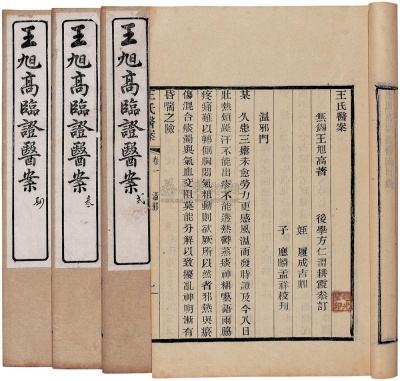 王氏醫案
無錫王旭高著
後學方仁淵耕霞叅訂
姪履成吉卿
子應麟孟祥校刋
溫邪門
某 久患三瘧未愈勞力更感風溫溫邪時發時讝及今八日
壯熱煩躁汗不能出疹不能透熱鬱蒸痰神糊囈語兩脇
疼痛難以轉側胸悶氣粗動則欲厥所以者邪熱與瘀
傷混合痰濁與氣血交阻莫能分解以致擾亂神明漸有
昏喘之險
王氏醫案 卷一 溫邪 一
王旭高臨證醫案 弍
王旭高臨證醫案 叁
王旭高臨證醫案